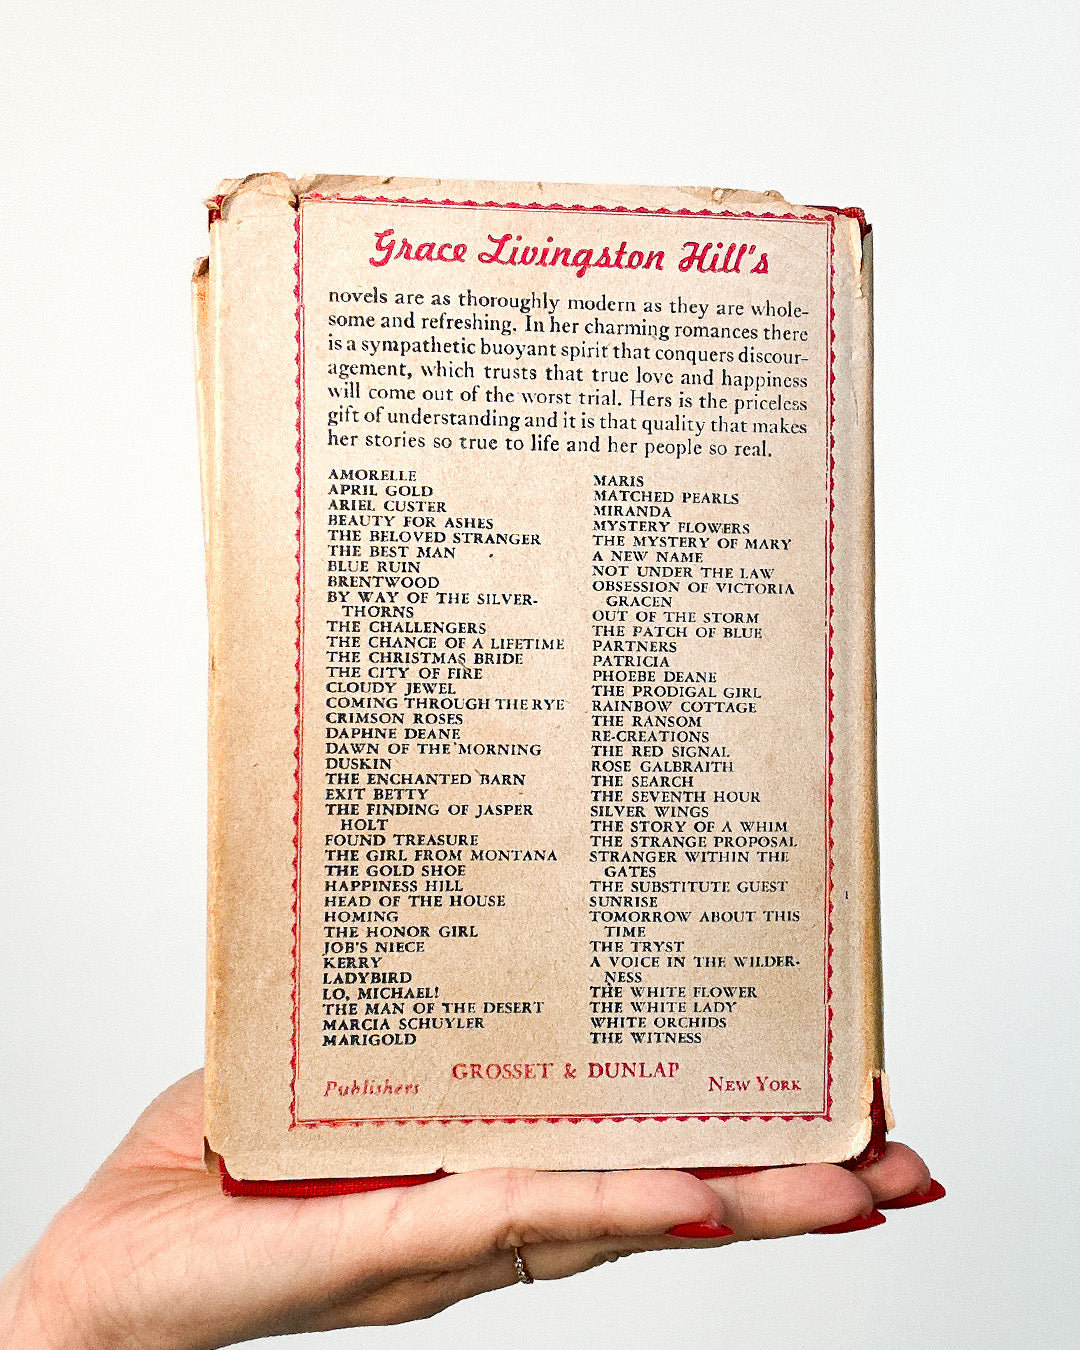 Grace Livingston Hill's
novels are as thoroughly modern as they are whole-
some and refreshing. In her charming romances there
is a sympathetic buoyant spirit that conquers discour-
agement, which trusts that true love and happiness
will come out of the worst trial. Hers is the priceless
gift of understanding and it is that quality that makes
her stories so true to life and her people so real.
AMORELLE
APRIL GOLD
ARIEL CUSTER
BEAUTY FOR ASHES
THE BELOVED STRANGER
THE BEST MAN
BLUE RUIN
BRENTWOOD
BY WAY OF THE SILVER-
THORNS
THE CHALLENGERS
THE CHANCE OF A LIFETIME
THE CHRISTMAS BRIDE
THE CITY OF FIRE
CLOUDY JEWEL
COMING THROUGH THE RYE
CRIMSON ROSES
DAPHNE DEANE
DAWN OF THE MORNING
DUSKIN
THE ENCHANTED BARN
EXIT BETTY
THE FINDING OF JASPER
HOLT
FOUND TREASURE
THE GIRL FROM MONTANA
THE GOLD SHOE
HAPPINESS HILL
HEAD OF THE HOUSE
HOMING
THE HONOR GIRL
JOB'S NIECE
KERRY
LADYBIRD
LO, MICHAEL!
THE MAN OF THE DESERT
MARCIA SCHUYLER
MARIGOLD
MARIS
MATCHED PEARLS
MIRANDA
MYSTERY FLOWERS
THE MYSTERY OF MARY
A NEW NAME
NOT UNDER THE LAW
OBSESSION OF VICTORIA
GRACEN
OUT OF THE STORM
THE PATCH OF BLUE
PARTNERS
PATRICIA
PHOEBE DEANE
THE PRODIGAL GIRL
RAINBOW COTTAGE
THE RANSOM
RE-CREATIONS
THE RED SIGNAL
ROSE GALBRAITH
THE SEARCH
THE SEVENTH HOUR
SILVER WINGS
THE STORY OF A WHIM
THE STRANGE PROPOSAL
STRANGER WITHIN THE
GATES
THE SUBSTITUTE GUEST
SUNRISE
TOMORROW ABOUT THIS
TIME
THE TRYST
A VOICE IN THE WILDER-
NESS
THE WHITE FLOWER
THE WHITE LADY
WHITE ORCHIDS
THE WITNESS
Publishers GROSSET & DUNLAP NEW YORK